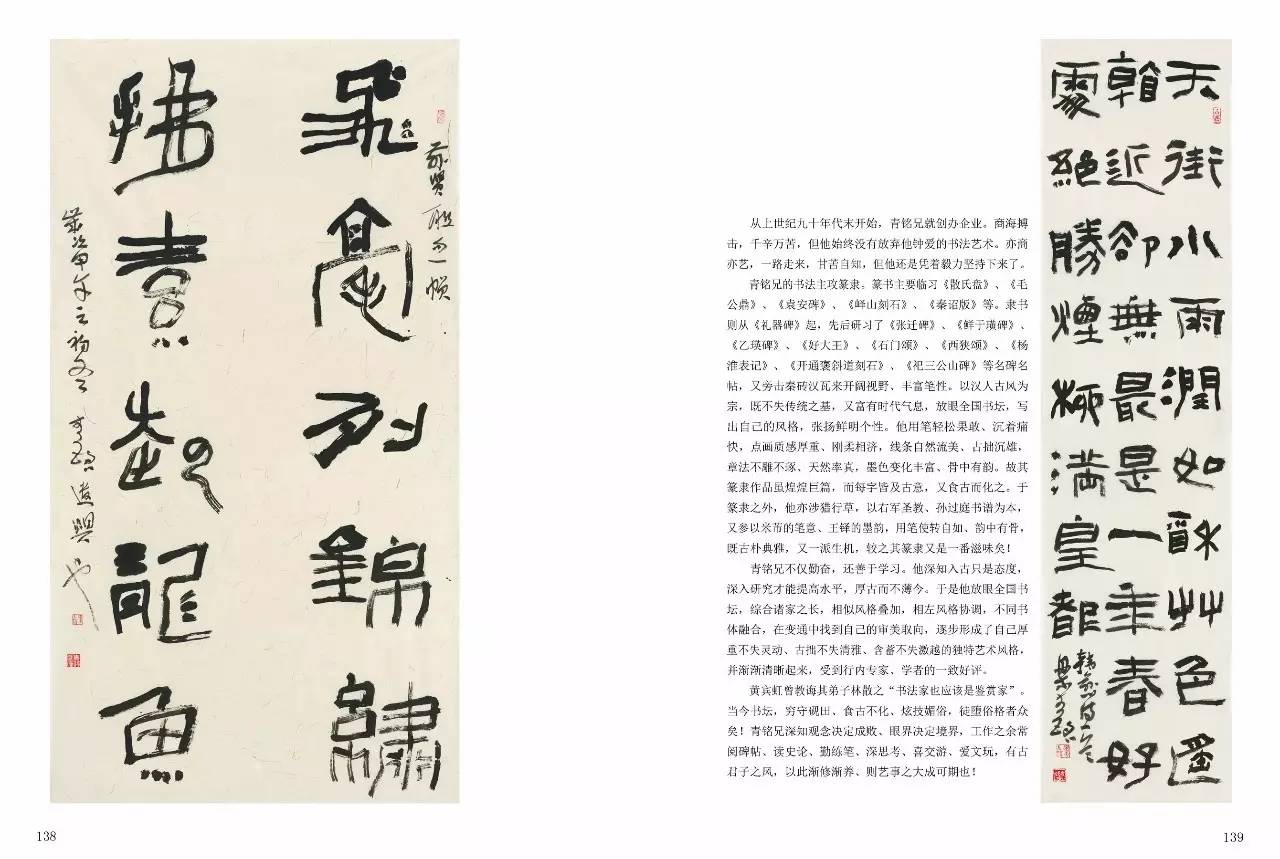 飞毫列锦绣
拂素起龙鱼
138
从上世纪九十年代末开始，青铭兄就创办企业。商海搏
击，千辛万苦，但他始终没有放弃他钟爱的书法艺术。亦商
亦艺，一路走来，甘苦自知，但他还是凭着毅力坚持下来了。
青铭兄的书法主攻篆隶。篆书主要临习《散氏盘》、《毛
公鼎》、《袁安碑》、《峄山刻石》、《秦诏版》等。隶书
则从《礼器碑》起，先后研习了《张迁碑》、《鲜于璜碑》、
《乙瑛碑》、《好大王》、《石门颂》、《西狭颂》、《杨
淮表记》、《开通褒斜道刻石》、《祀三公山碑》等名碑名
帖，又旁击秦砖汉瓦来开阔视野、丰富笔性。以汉人古风为
宗，既不失传统之基，又富有时代气息，放眼全国书坛，写
出自己的风格，张扬鲜明个性。他用笔轻松果敢、沉着痛
快，点画质感厚重、刚柔相济，线条自然流美、古拙沉雄，
章法不雕不琢、天然率真，墨色变化丰富、骨中有韵。故其
篆隶作品虽煌煌巨篇，而每字皆及古意，又食古而化之。于
篆隶之外，他亦涉猎行草，以右军圣教、孙过庭书谱为本，
又参以米芾的笔意、王铎的墨韵，用笔使转自如、韵中有骨，
既古朴典雅，又一派生机，较之其篆隶又是一番滋味矣！
青铭兄不仅勤奋，还善于学习。他深知入古只是态度，
深入研究才能提高水平，厚古而不薄今。于是他放眼全国书
坛，综合诸家之长，相似风格叠加，相左风格协调，不同书
体融合，在变通中找到自己的审美取向，逐步形成了自己厚
重不失灵动、古拙不失清雅、含蓄不失激越的独特艺术风格，
并渐渐清晰起来，受到行内专家、学者的一致好评。
黄宾虹曾教诲其弟子林散之“书法家也应该是鉴赏家”。
当今书坛，穷守砚田、食古不化、炫技媚俗，徒堕俗格者众
矣！青铭兄深知观念决定成败、眼界决定境界，工作之余常
阅碑帖、读史论、勤练笔、深思考、喜交游、爱文玩，有古
君子之风，以此渐修渐养、则艺事之大成可期也！
天街小雨润如酥艸色遥
看近却无最是一年春好
处绝胜烟柳满皇都
139